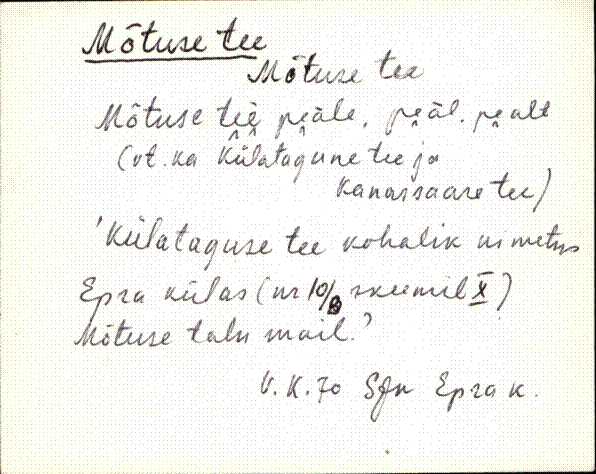 Mõtuse tee
Mõtuse tee
Mõtuse tee peäle, peäl, pealt
(vt. ka Külatagune tee ja
Kanassaare tee)
'Külataguse tee kohalik nimetus
Epra külas (nr 10/B skeemil X)
Mõtuse talu mail.'
V.K. 70 SJn Epra k.